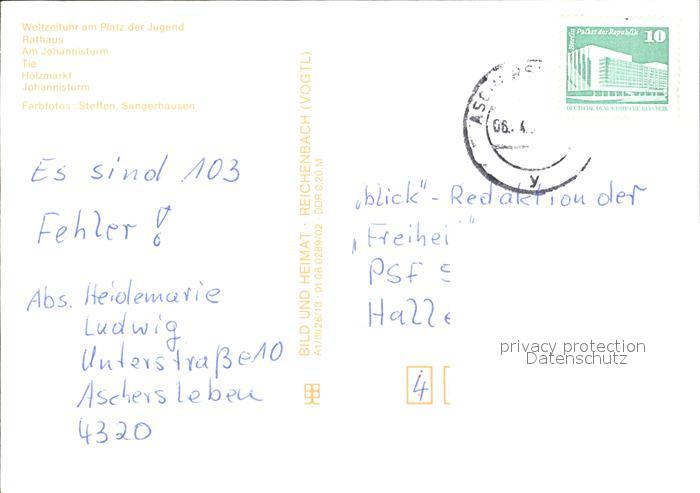 Weltzeituhr am Platz der Jugend
Rathaus
Am Johannisturm
Tie
Holzmarkt
Johannisturm
Farbfotos: Steffen, Sangerhausen
Es sind 103
Fehler!
Abs. Heidemarie
Ludwig
Unterstraße 10
Aschersleben
4320
BILD UND HEIMAT · REICHENBACH (VOGTL)
A1/III/26/13 · 01 08 0289/02 · DDR 0,20 M
Berlin Palast der Republik
10
DEUTSCHE DEMOKRATISCHE REPUBLIK
06. 4.
y
„blick"-Redaktion der
„Freihei "
PSF
Halle
privacy protection
Datenschutz
4